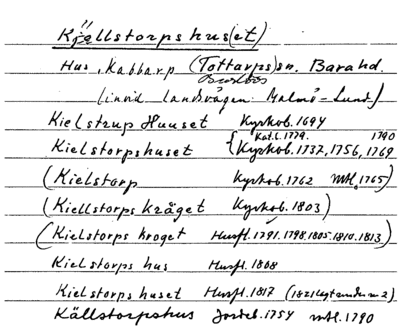 Kjällstorpshus(et)
Hus, Kabbarp (Tottarps) sn. Bara hd.
(invid landsvägen Malmö-Lund)
Kielstrup Huuset Kyrkob. 1694
Kat.l. 1779. 1790
Kielstorpshuset {Kyrkob. 1737, 1756, 1769
(Kielstorp Kyrkob. 1762 mtl. 1765)
(Kiellstorps kräget Kyrkob. 1803)
(Kielstorps kroget Husfl. 1791. 1798. 1805. 1810. 1813)
Kielstorps hus Husfl. 1808
Kielstorps huset Husfl. 1817 (1821
Källstorpshus Jordeb. 1754 mtl. 1790